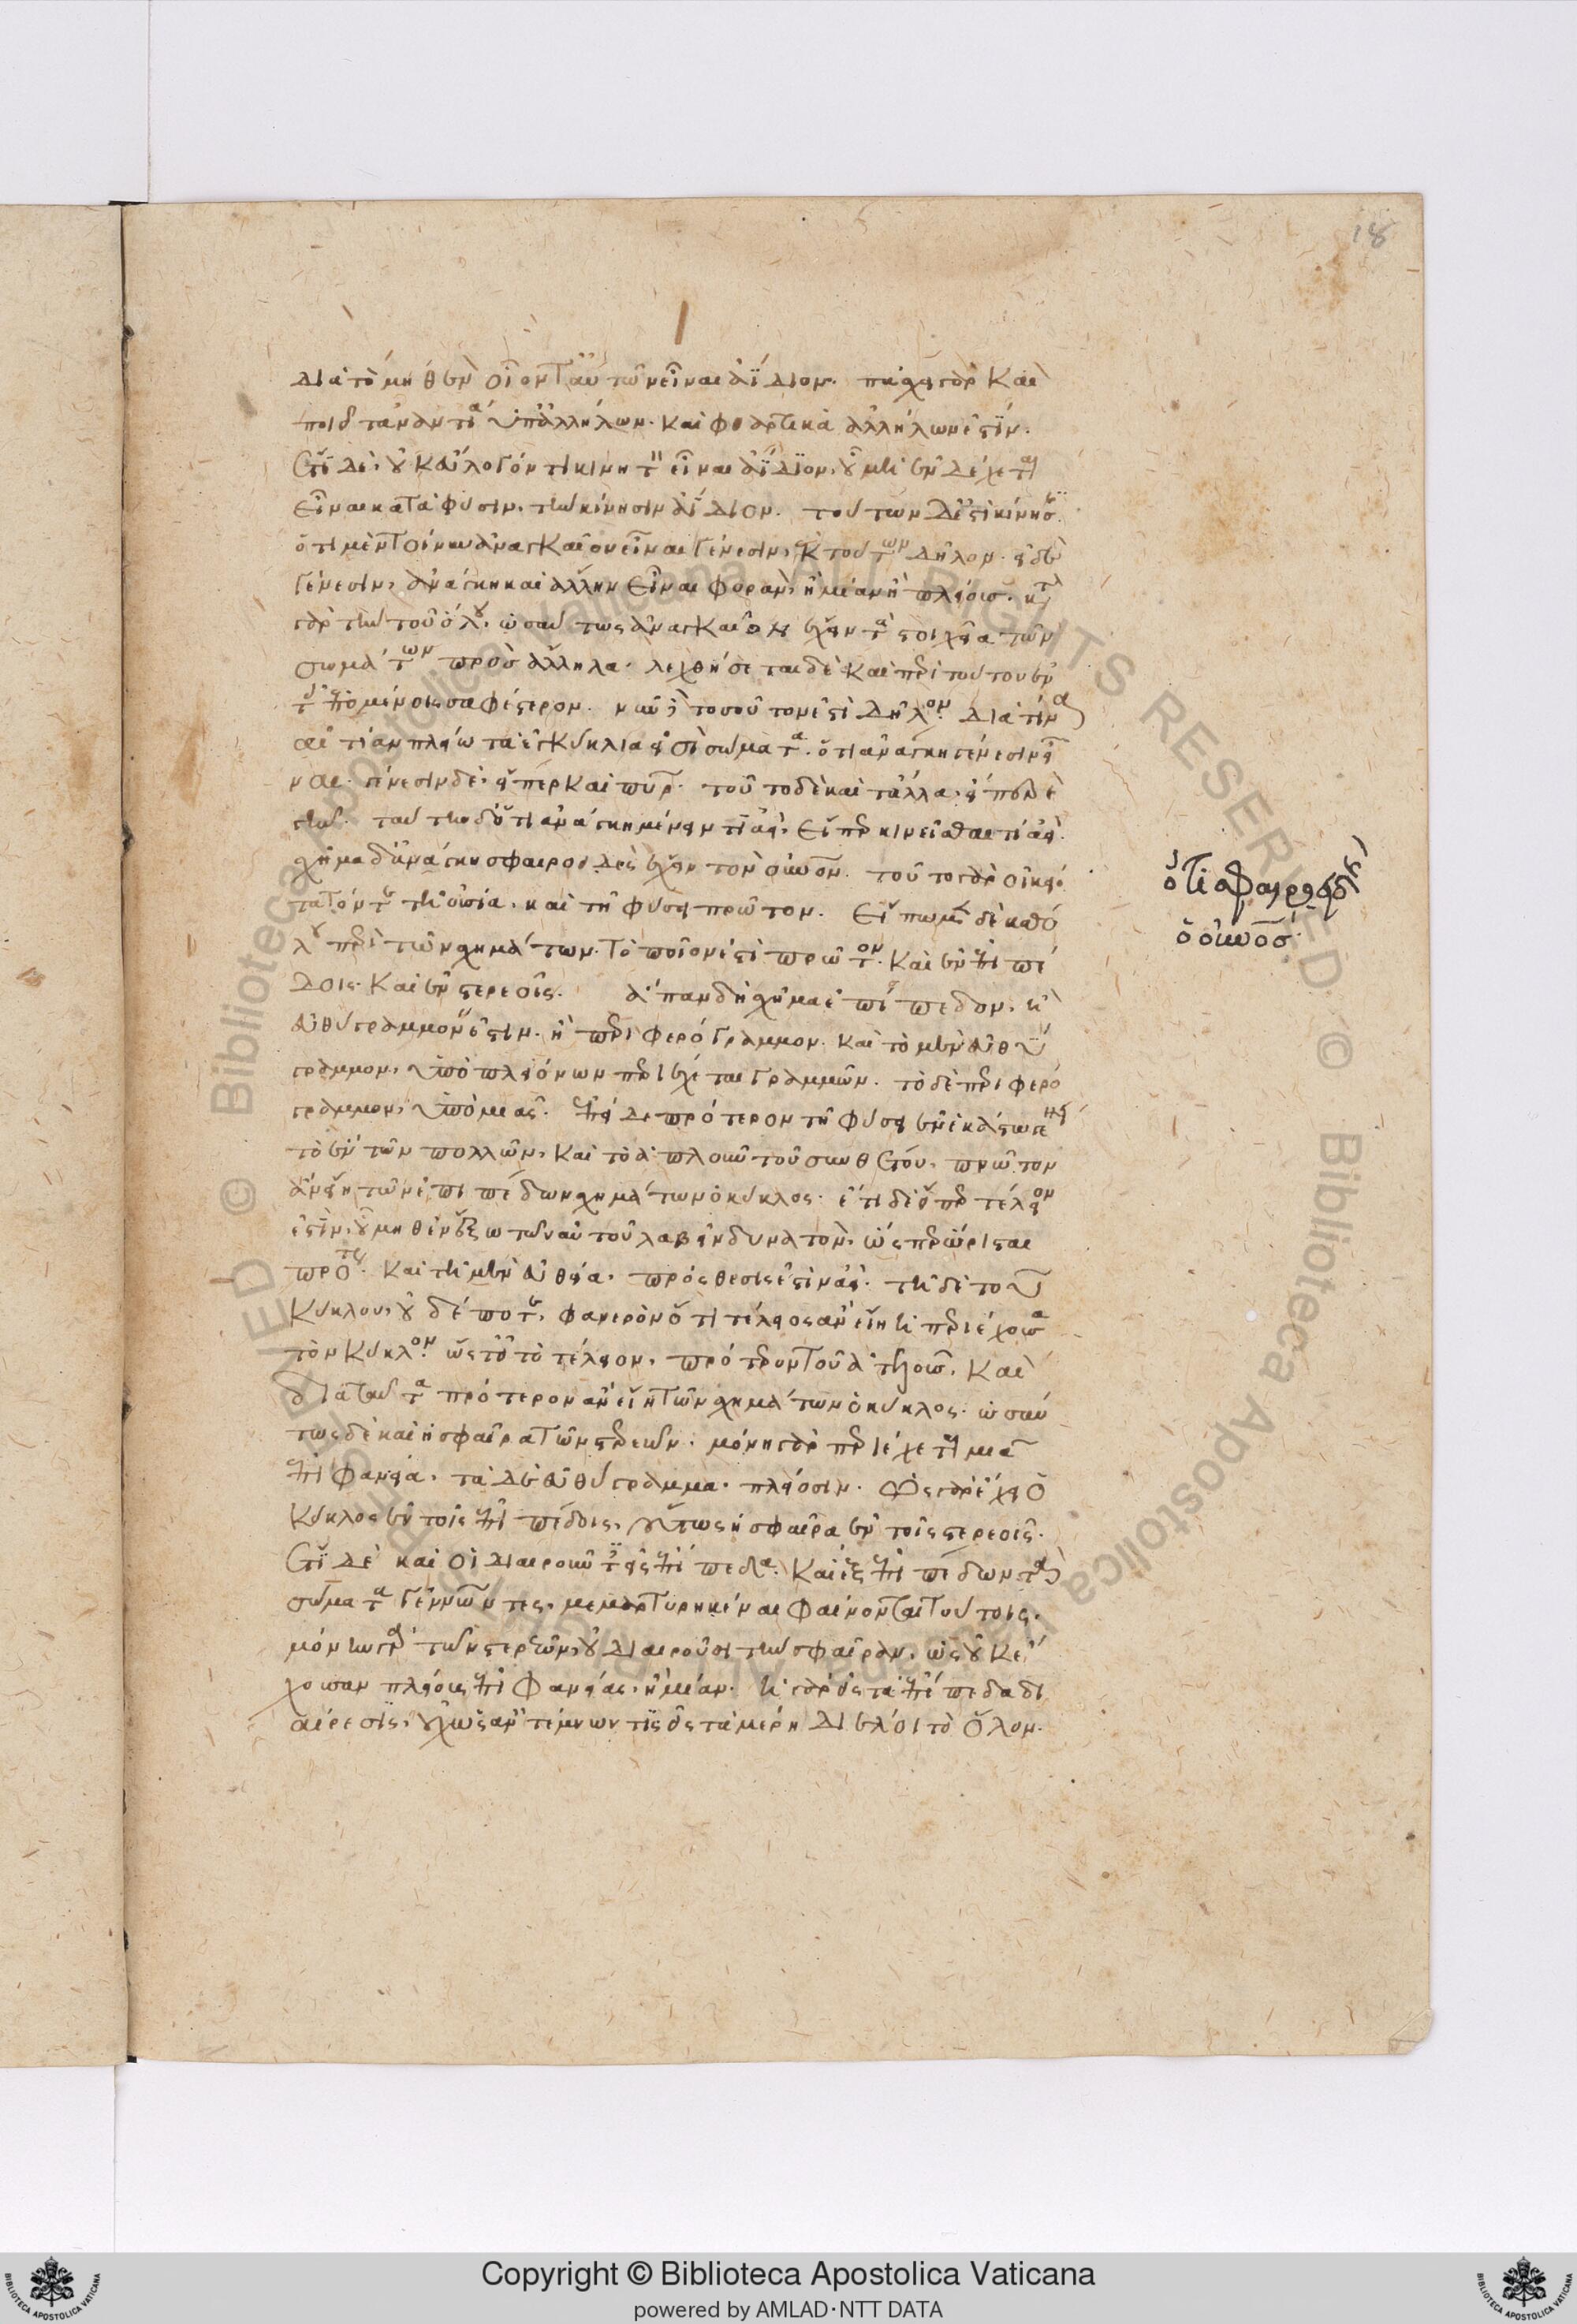 διὰ τὸ μηθὲν οἷόν τ' αὐτῶν εἶναι ἀΐδιον· πάσχει γὰρ καὶ
ποιεῖ τἀναντία ὑπ' ἀλλήλων· καὶ φθαρτικὰ ἀλλήλων ἐστίν·
ἔτι δὲ, οὐκ εὔλογόν τι κινητὸν εἶναι ἀΐδιον, οὗ μὴ ἐνδέχεται
εἶναι κατὰ φύσιν, τὴν κίνησιν ἀΐδιον. τούτων δέ ἐστι κίνησις·
ὅτι μὲν τοίνυν ἀναγκαῖον εἶναι γένεσιν, ἐκ τούτων δῆλον· εἰ δὲ
γένεσιν, ἀνάγκη καὶ ἄλλην εἶναι φορὰν, ἢ μίαν ἢ πλείους· κατὰ
γὰρ τὴν τοῦ ὅλου, ὡσαύτως ἀναγκαῖον ἔχειν τὰ στοιχεῖα τῶν
σωμάτων πρὸς ἄλληλα· λεχθήσεται δὲ καὶ περὶ τούτου ἐν
τοῖς ἑπομένοις σαφέστερον. νῦν δὲ τοσοῦτον ἐστὶ δῆλον· διὰ τίνα
αἰτίαν πλείω τὰ ἐγκύκλια εἰσὶ σώματα· ὅτι ἀνάγκη γένεσιν εἶ
ναι. γένεσιν δὲ, εἴπερ καὶ πῦρ. τοῦτο δὲ καὶ τἄλλα, εἴπερ δὲ
γῆν. ταύτην δ' ὅτι ἀνάγκη μένειν τι ἀεὶ, εἴπερ κινεῖσθαι τι ἀεὶ.
σχῆμα δ' ἀνάγκη σφαιροειδὲς ἔχειν τὸν οὐνον. τοῦτο γὰρ οἰκειό
τατόν τε τῆ οὐσία, καὶ τῆ φύσει πρῶτον. εἴπωμεν δὲ καθό
λου περὶ τῶν σχημάτων. τὸ ποῖον ἐστὶ πρῶτον. καὶ ἐν ἐπιπέ
δοις. καὶ ἐν στερεοῖς. ἅπαν δὴ σχῆμα ἐπίπεδον, ἢ
εὐθύγραμμόν ἐστιν. ἢ περιφερόγραμμον. καὶ τὸ μὲν εὐθύ
γραμμον, ὑπὸ πλειόνων περιέχεται γραμμῶν. τὸ δὲ περιφερό
γραμμον, ὑπὸ μιᾶς. ἐπεὶ δὲ πρότερον τῆ φύσει ἐν ἑκάστω γένει
τὸ ἓν τῶν πολλῶν, καὶ τὸ ἁπλοῦν τοῦ συνθέτου, πρῶτον
ἂν εἴη τῶν ἐπιπέδων σχημάτων ὁ κύκλος. ἔτι δὲ εἴπερ τέλειον
ἐστὶν, οὗ μηθὲν ἔξω τῶν αὐτοῦ λαβεῖν δυνατὸν, ὥσπερ ὥρισται
πρότερον. καὶ τῆ μὲν εὐθεία, πρόσθεσις ἐστὶν ἀεὶ. τῆ δὲ τοῦ
κύκλου, οὐδέποτε, φανερὸν ὅτι τέλειος ἂν εἴη ἡ περιέχουσα
τὸν κύκλον. ὥστ' εἰ τὸ τέλειον, πρότερον τοῦ ἀτελοῦς, καὶ
διὰ ταῦτα πρότερον ἂν εἴη τῶν σχημάτων ὁ κύκλος. ὡσαύ
τως δὲ καὶ ἡ σφαῖρα τῶν στερεῶν. μόνη γὰρ περιέχεται μιᾶ
ἐπιφανεία, τὰ δὲ εὐθύγραμμα, πλείοσιν. ὡς γὰρ ἔχει ὁ
κύκλος ἐν τοῖς ἐπιπέδοις, οὕτως ἡ σφαῖρα ἐν τοῖς στερεοῖς.
ἔτι δὲ καὶ οἱ διαιροῦντες εἰς ἐπίπεδα. καὶ ἐξ ἐπιπέδων τὰ
σώματα γεννῶντες, μεμαρτυρηκέναι φαίνονται τούτοις.
μόνην γὰρ τῶν στερεῶν, οὐ διαιροῦσι τὴν σφαῖραν, ὡς οὐκ ἔ
χουσαν πλείους ἐπιφανείας, ἢ μίαν. ἡ γὰρ εἰς τὰ ἐπίπεδα δι
αίρεσις, οὐχ ὡς ἂν τέμνων τις εἰς τὰ μέρη διέλοι τὸ ὅλον.
ὅτι σφαιροειδὴς
ὁ οὐνος.
18
Copyright © Biblioteca Apostolica Vaticana
powered by AMLAD·NTT DATA